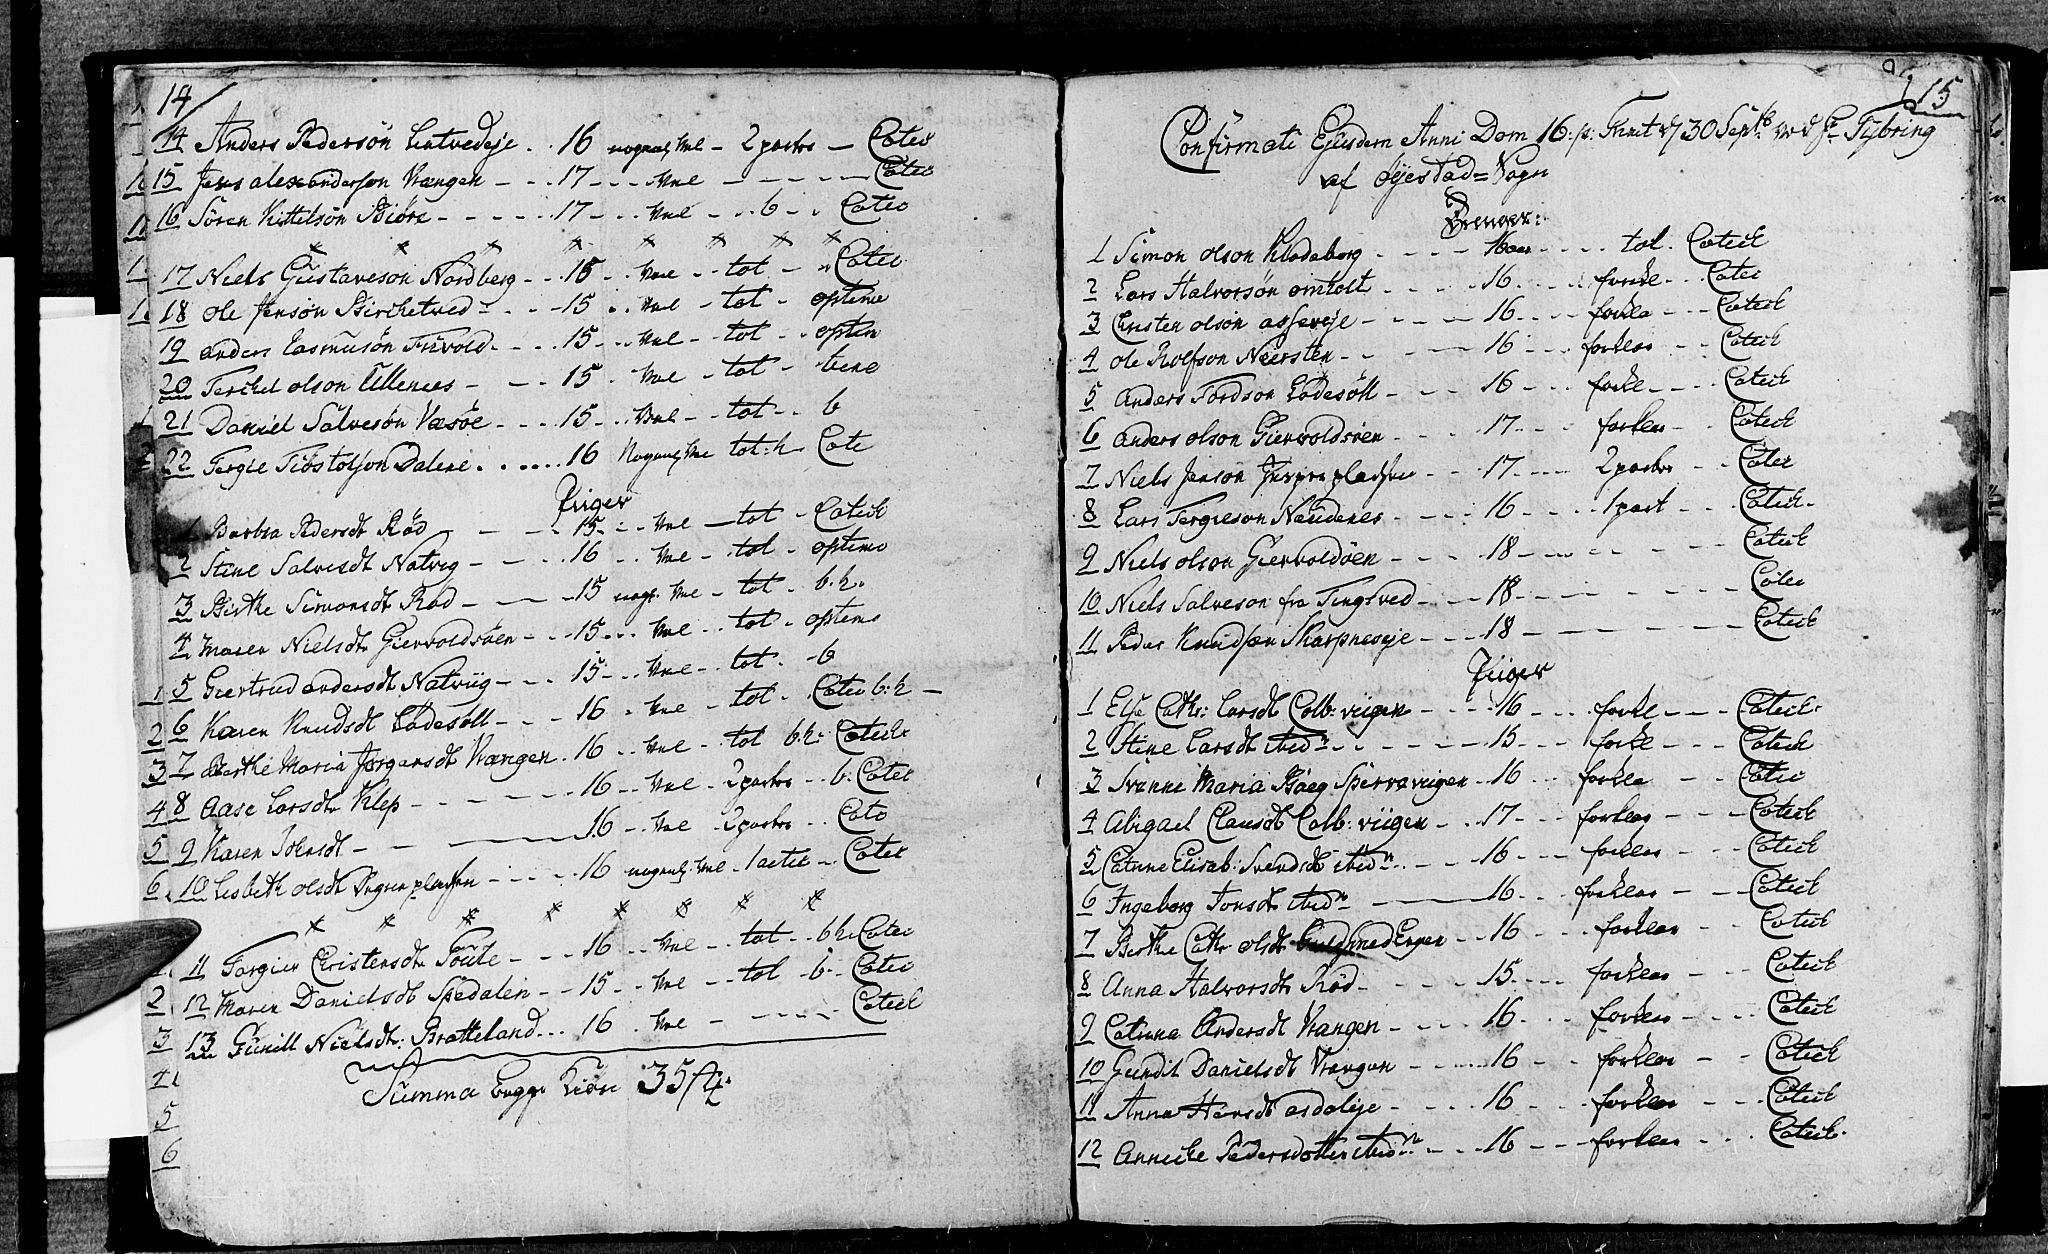 14
14 Anders Pedersøn Lutvedeje .. 16 nogenl: vel - 2 partes - Catec
15 Jens alexandersøn Vrængen - - . 17 - . . vel - - - - - Catec
16 Søren Kittelsøn Biøre - - - - - . 17 - . . vel - . . b - . Catec
17 Niels Gustaveson Nordberg - . . 15 . . vel . . tot - . Catec
18 ole Jensøn Birchetved - . . . - 15 . . vel - tot - optime
19 anders Rasmusøn Trivold - . . . 15 . . vel - tot . . optim
20 Terchel olson - - . . 15 . vel - tot - bene
21 Daniel Salvesøn Væsøe - . . . 15 . . vel - tot . . b
22 Tergie Dalene . . . . . . 16 Nogenl: vel tot: h Cate
Piiger
1 Barbra Pedersdt Rød - - - . . 15 - . vel - tot - Catech
2 Stine Salvesdt Natvig - - - - 16 - . vel - tot - optime
3 Birthe Simonsdt Rød - - - - 15 nogl. vel - tot - b. h.
4 Maren Nielsdt Giervoldsøen - . . 15 . . . vel . . tot - optime
5 Giertrud andersdt Natviig - . . . 15 . . . vel - . tot . - b
6 Karen Knudsdt Lødesøll - . . . 16 . vel - . tot . . Catec b: h -
7 Birthe Maria Jørgensdt Vrængen . 16 . . vel - . tot b. h: Catech
8 Aase Larsdt Klep - - - - - - 16 - . vel . . 2 partes . . b. Catec
9 Karen Johnsdt - - - 16 . . vel . 2 partes . . Cate
10 Lisbeth olsdt - . . . . 16 nogenl: vel . 1 actic . . Catec
11 Torgier Christensdt - . . . 16 . . vel - . tot . . b h Catec
12 Maren Danielsdt Spedalen . . . 15 . . vel - . tot . b . Catec
13 Gunill Nielsdt: Bratteland . . . 16 . vel - - - . . Catech
Summa begge Kiøn 35
15
Confirmati Ejusdem Anni Dom 16. p: Trinit d 30 Septb: ved Hr Tybring
af øyestad = Sogn
Drenger:
1 Simon olson Klodeborg . - - . 16 aar - . . . tot . Catech
2 Lars Halvorsøn omholt . . . . 16 . . . forkle - . . Catec
3 Christen olsøn asseveje . - - - 16 . . . forkla . . . Catech
4 ole Rolfson Neersten - . . - 16 . . . forklar - . . Catech
5 Anders Tordson Lødesøll - . . . 16 . . . forkle - . . . Catech
6 anders olson Gierwoldsøen - . . . 17 . . . forklar - . . Catech
7 Niels Jenson - . . . 17 . . . . 2 partes - . Catec
8 Lars Tergieson Neudenes - . . . 16 . . . 1 part - . . Catech -
9 Niels olson Gierwoldsøen - . . . 18 - . . . . - - Catech
10 Niels Salveson fra Tingstved - . . . 18 - - - - - - Catec
11 Peder Knudsøn Skarpneseje - . . . 18 - - - - - - Catech
Piiger
1 Else Cath: Larsdt Colb: viigen - . . . 16 - . . forkle - . . Catech.
2 Stine Larsdt ibidm . . . . . 15 - . . forkle - - - Catech
3 Svenne Maria Sperreviigen . . 16 . . . forkla - . . Catec
4 Abigael Clausdt Colb: viigen - . . 17 - . . forklar - - . Catech
5 Catrine Elisab: Svendsdt ibidm . . . . 16 . . . forklar - - Catech
6 Ingeborg Tonsdt ibidm - - 16 . . . forklar - - . Catech
7 Birthe Cath olsdt . . 16 . . . forklar - - Catech
8 Anna Halvorsdt Rød - . . . . 15 . . . forklar - . . Catech
9 Catrina Andersdt Vrangen - . . . 16 - . . forklar - - . Catech
10 Gundil Danielsdt Vrangen - . . . 16 - . . forklar - - Catech
11 Anna Hansdt asdaleje - - - . 16 . . . forklar - - . Catech
12 Anniche Pedersdotter ibidm . - - . 16 - . . forklar - - . Catech.
1
2
3
4
5
6
1
2
3
4
5
6